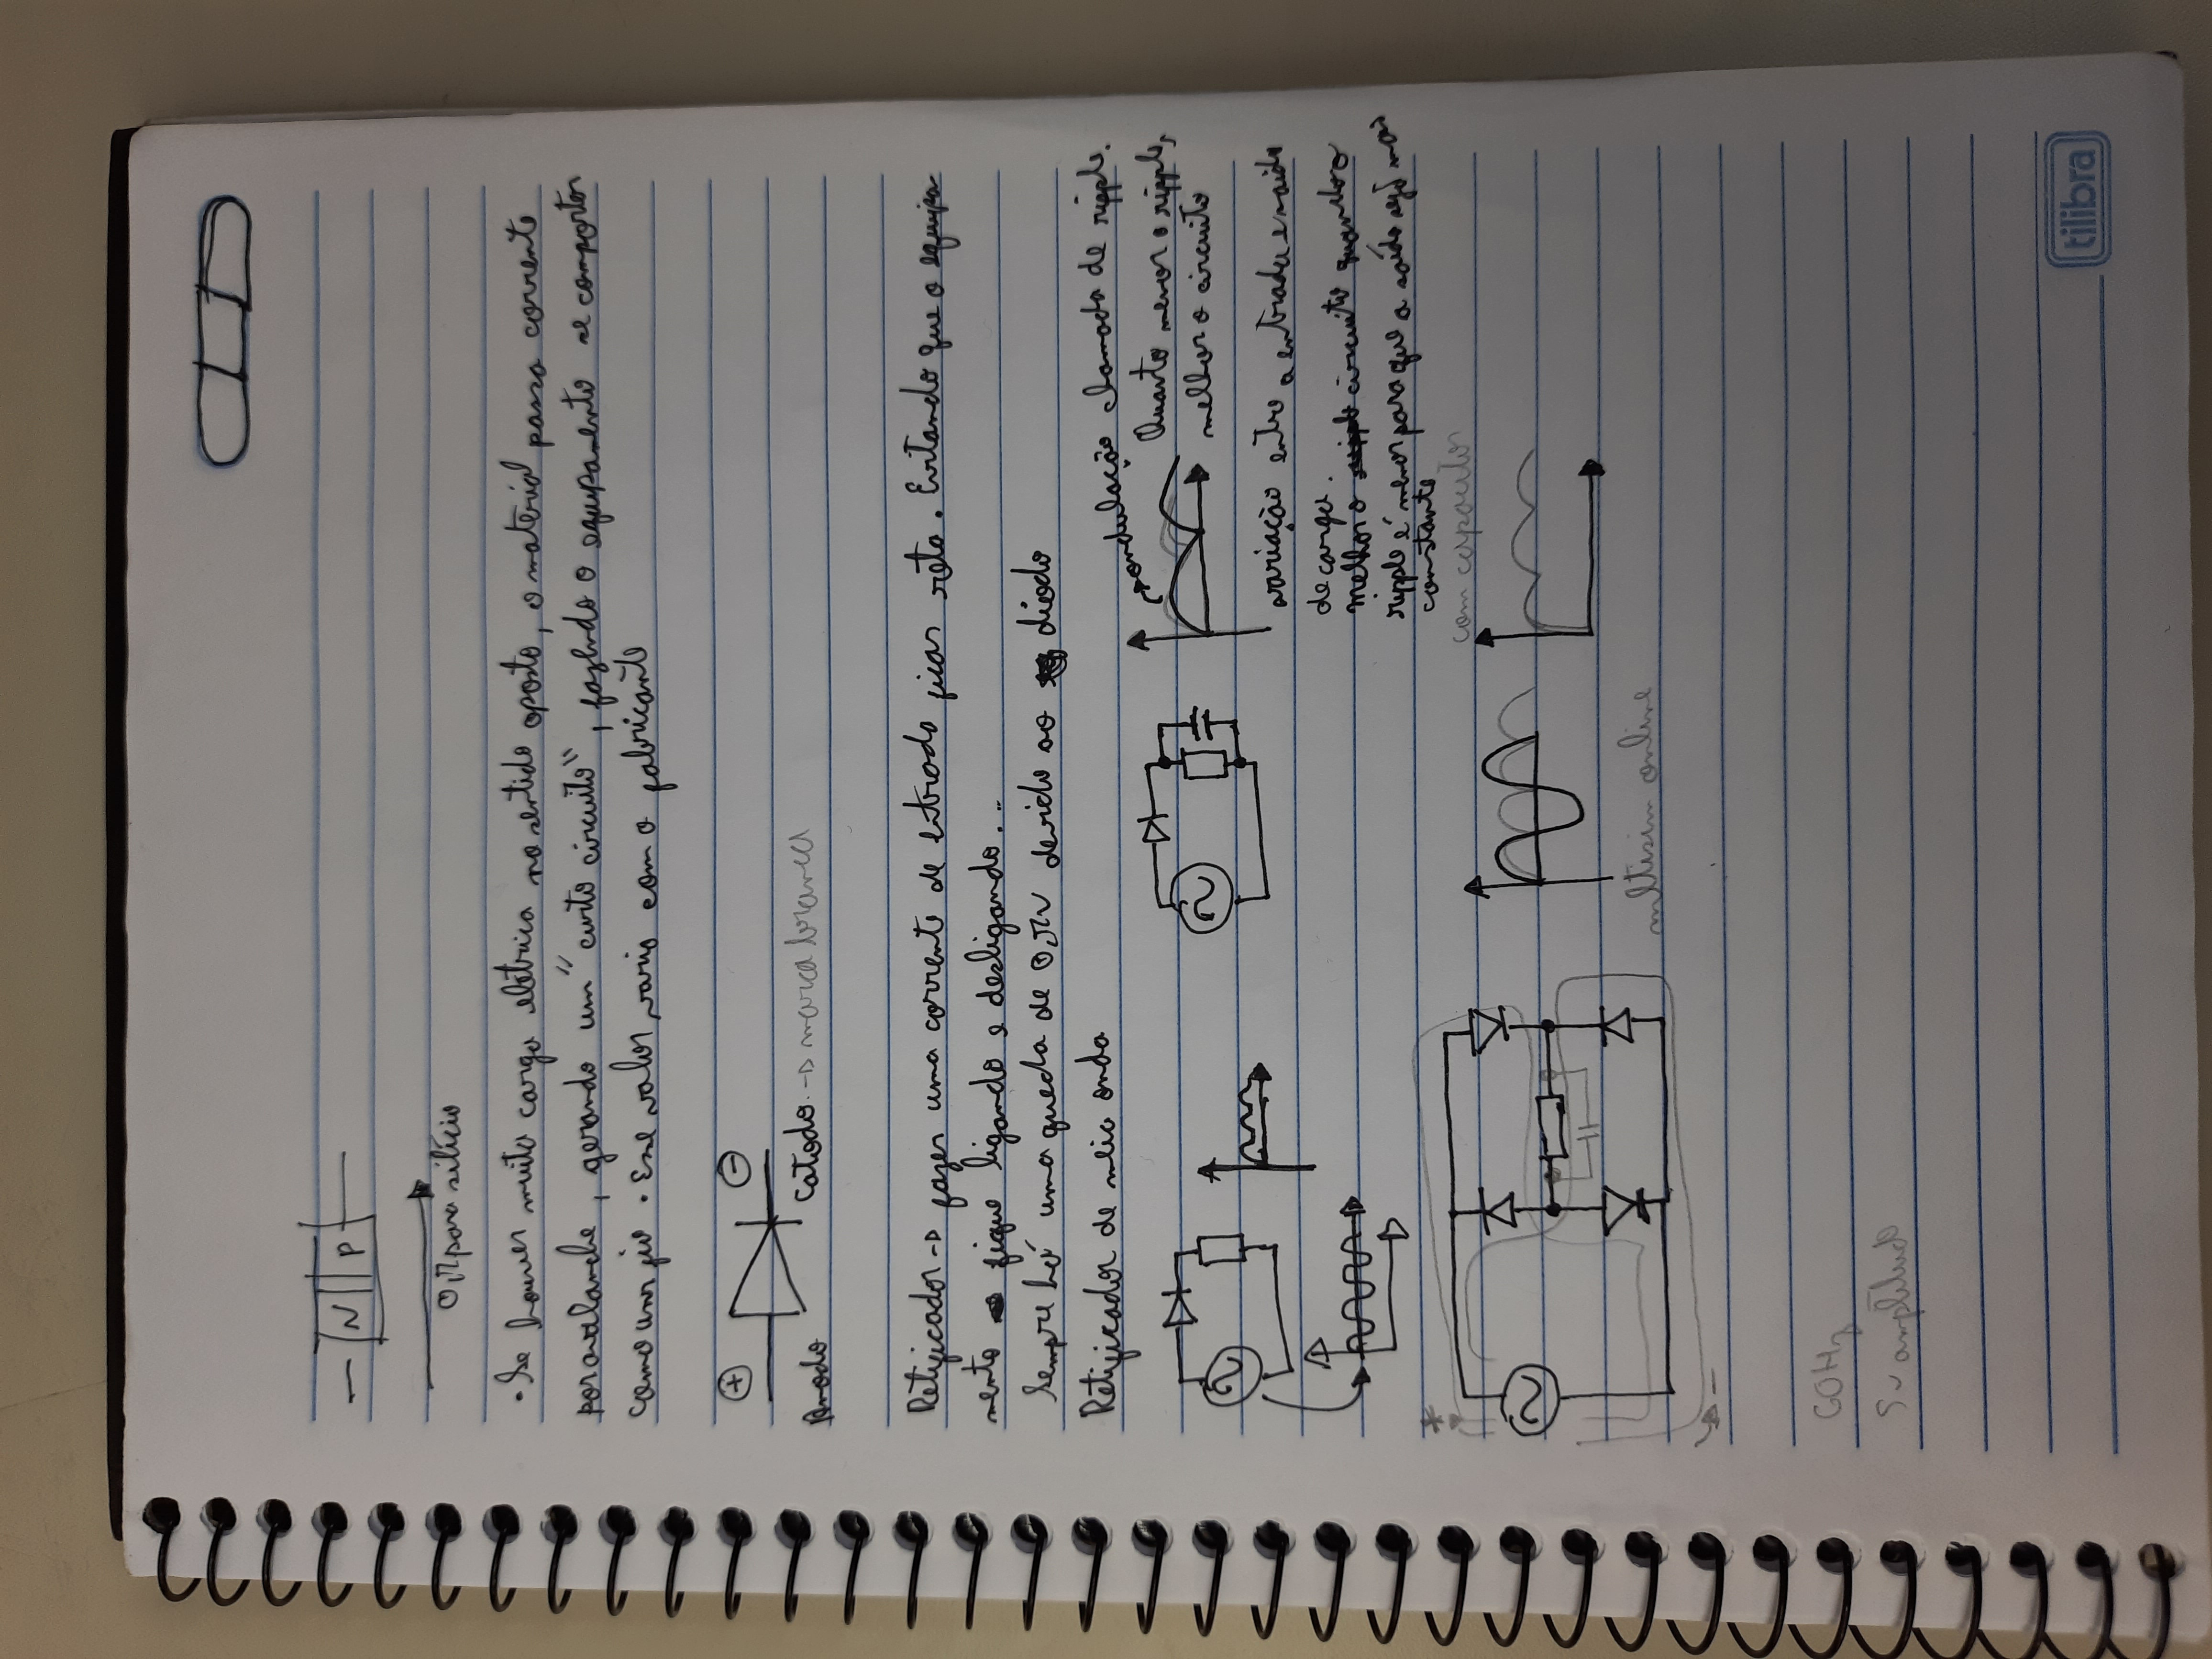 N P
0,7 para silício
• Se houver muita carga elétrica no sentido oposto, o material passa corrente
por avalanche, gerando um "curto circuito", fazendo o equipamento se comportar
como um fio. Esse valor varia com o fabricante
+ -
Anodo Catodo -> marca branca
Retificador -> fazer uma corrente de entrada ficar reta. Evitando que o equipa-
mento fique ligando e desligando...
Sempre há uma queda de 0,7v devido ao diodo
Retificador de meia onda
-> ondulação chamada de ripple.
Quanto menor o ripple,
melhor o circuito
variação entre a entrada e saida
de carga.
melhor o circuito quando o
ripple é menor para que a saída seja mais
constante
com capacitor
*
mltisim online
-
60Hz
5v amplitude
tilibra